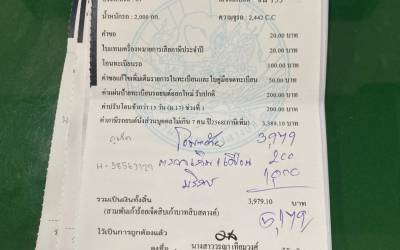 น้ำหนักรถ : 2,000 กก. ความจุรถ : 2,442 C.C
ค่าขอ 20.00 บาท
ใบแทนเครื่องหมายการเสียภาษีประจำปี 20.00 บาท
โอนทะเบียนรถ 100.00 บาท
ค่าขอแก้ไขเพิ่มเติมรายการในทะเบียนและใบคู่มือจดทะเบียน 50.00 บาท
ค่าแผ่นป้ายทะเบียนรถยนต์ออกใหม่ รับปกติ 200.00 บาท
ค่าปรับโอนช้ากว่า 15 วัน (ม.17) ช่วงที่ 1 200.00 บาท
ค่าภาษีรถยนต์นั่งส่วนบุคคลไม่เกิน 7 คน ปี2568(ภาษีเพิ่ม) 3,389.10 บาท
3,979
200
บริการ 1,000
รวมเป็นเงินทั้งสิ้น 3,979.10 บาท
(สามพันเก้าร้อยเจ็ดสิบเก้าบาทสิบสตางค์)
5,179
ไว้เป็นการถูกต้องแล้ว